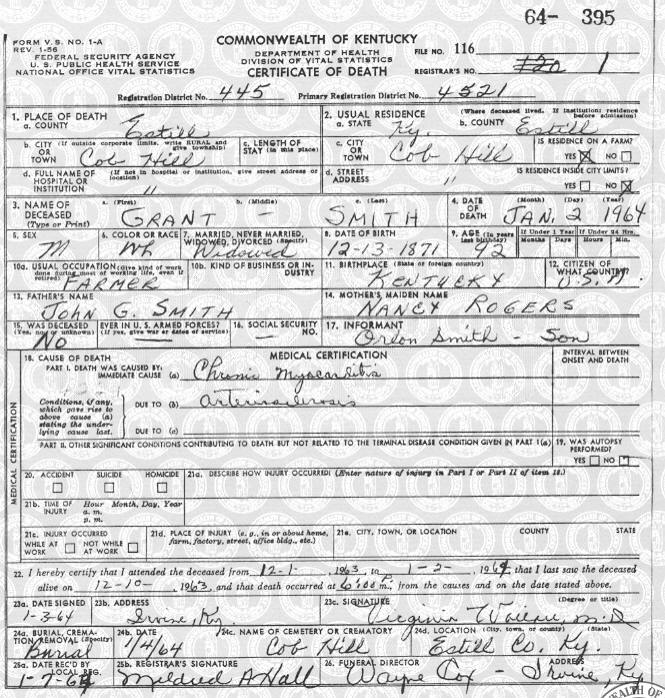 64- 395
FORM V.S. NO. 1-A
REV. 1-56
FEDERAL SECURITY AGENCY
U. S. PUBLIC HEALTH SERVICE
NATIONAL OFFICE VITAL STATISTICS
COMMONWEALTH OF KENTUCKY
DEPARTMENT OF HEALTH
DIVISION OF VITAL STATISTICS
CERTIFICATE OF DEATH
FILE NO. 116
REGISTRAR'S NO. 120 1
Registration District No. 445 Primary Registration District No. 4521
1. PLACE OF DEATH
a. COUNTY Estill
2. USUAL RESIDENCE (Where deceased lived. If institution: residence before admission)
a. STATE Ky. b. COUNTY Estill
b. CITY (If outside corporate limits, write RURAL and give township)
OR TOWN Cob Hill
c. LENGTH OF STAY (in this place)
c. CITY OR TOWN Cob Hill
IS RESIDENCE ON A FARM?
YES X NO
d. FULL NAME OF HOSPITAL OR INSTITUTION (If not in hospital or institution, give street address or location) "
d. STREET ADDRESS "
IS RESIDENCE INSIDE CITY LIMITS?
YES NO X
3. NAME OF DECEASED (Type or Print)
a. (First) b. (Middle) c. (Last)
GRANT - SMITH
4. DATE OF DEATH (Month) (Day) (Year)
JAN. 2 1964
5. SEX M
6. COLOR OR RACE Wh
7. MARRIED, NEVER MARRIED, WIDOWED, DIVORCED (Specify) Widowed
8. DATE OF BIRTH 12-13-1871
9. AGE (In years last birthday) 92
If Under 1 Year Months Days
If Under 24 Hrs. Hours Min.
10a. USUAL OCCUPATION (Give kind of work done during most of working life, even if retired) FARMER
10b. KIND OF BUSINESS OR INDUSTRY
11. BIRTHPLACE (State or foreign country) KENTUCKY
12. CITIZEN OF WHAT COUNTRY? U.S.A.
13. FATHER'S NAME JOHN G. SMITH
14. MOTHER'S MAIDEN NAME NANCY ROGERS
15. WAS DECEASED EVER IN U. S. ARMED FORCES?
(Yes, no, or unknown) (If yes, give war or dates of service)
No —
16. SOCIAL SECURITY NO. —
17. INFORMANT Orlon Smith - Son
18. CAUSE OF DEATH
MEDICAL CERTIFICATION
INTERVAL BETWEEN ONSET AND DEATH
PART I. DEATH WAS CAUSED BY:
IMMEDIATE CAUSE (a) Chronic Myocarditis
Conditions, if any, which gave rise to above cause (a) stating the underlying cause last.
DUE TO (b) arteriosclerosis
DUE TO (c)
PART II. OTHER SIGNIFICANT CONDITIONS CONTRIBUTING TO DEATH BUT NOT RELATED TO THE TERMINAL DISEASE CONDITION GIVEN IN PART I(a)
19. WAS AUTOPSY PERFORMED?
YES NO
MEDICAL CERTIFICATION
20. ACCIDENT SUICIDE HOMICIDE
21a. DESCRIBE HOW INJURY OCCURRED! (Enter nature of injury in Part I or Part II of item 18.)
21b. TIME OF INJURY Hour Month, Day, Year
a. m.
p. m.
21c. INJURY OCCURRED
WHILE AT WORK NOT WHILE AT WORK
21d. PLACE OF INJURY (e. g., in or about home, farm, factory, street, office bldg., etc.)
21e. CITY, TOWN, OR LOCATION COUNTY STATE
22. I hereby certify that I attended the deceased from 12-1-, 1963, to 1-2-, 1964 that I last saw the deceased
alive on 12-10-, 1963, and that death occurred at 6:00 m., from the causes and on the date stated above.
23a. DATE SIGNED 1-3-64
23b. ADDRESS Irvine, Ky
23c. SIGNATURE (Degree or title)
Virginia Wallace M.D
24a. BURIAL, CREMATION, REMOVAL (Specify) Burial
24b. DATE 1/4/64
24c. NAME OF CEMETERY OR CREMATORY Cob Hill
24d. LOCATION (City, town, or county) (State)
Estill Co. Ky.
25a. DATE REC'D BY LOCAL REG. 1-7-64
25b. REGISTRAR'S SIGNATURE Mildred A Hall
26. FUNERAL DIRECTOR ADDRESS
Wayne Cox - Irvine, Ky